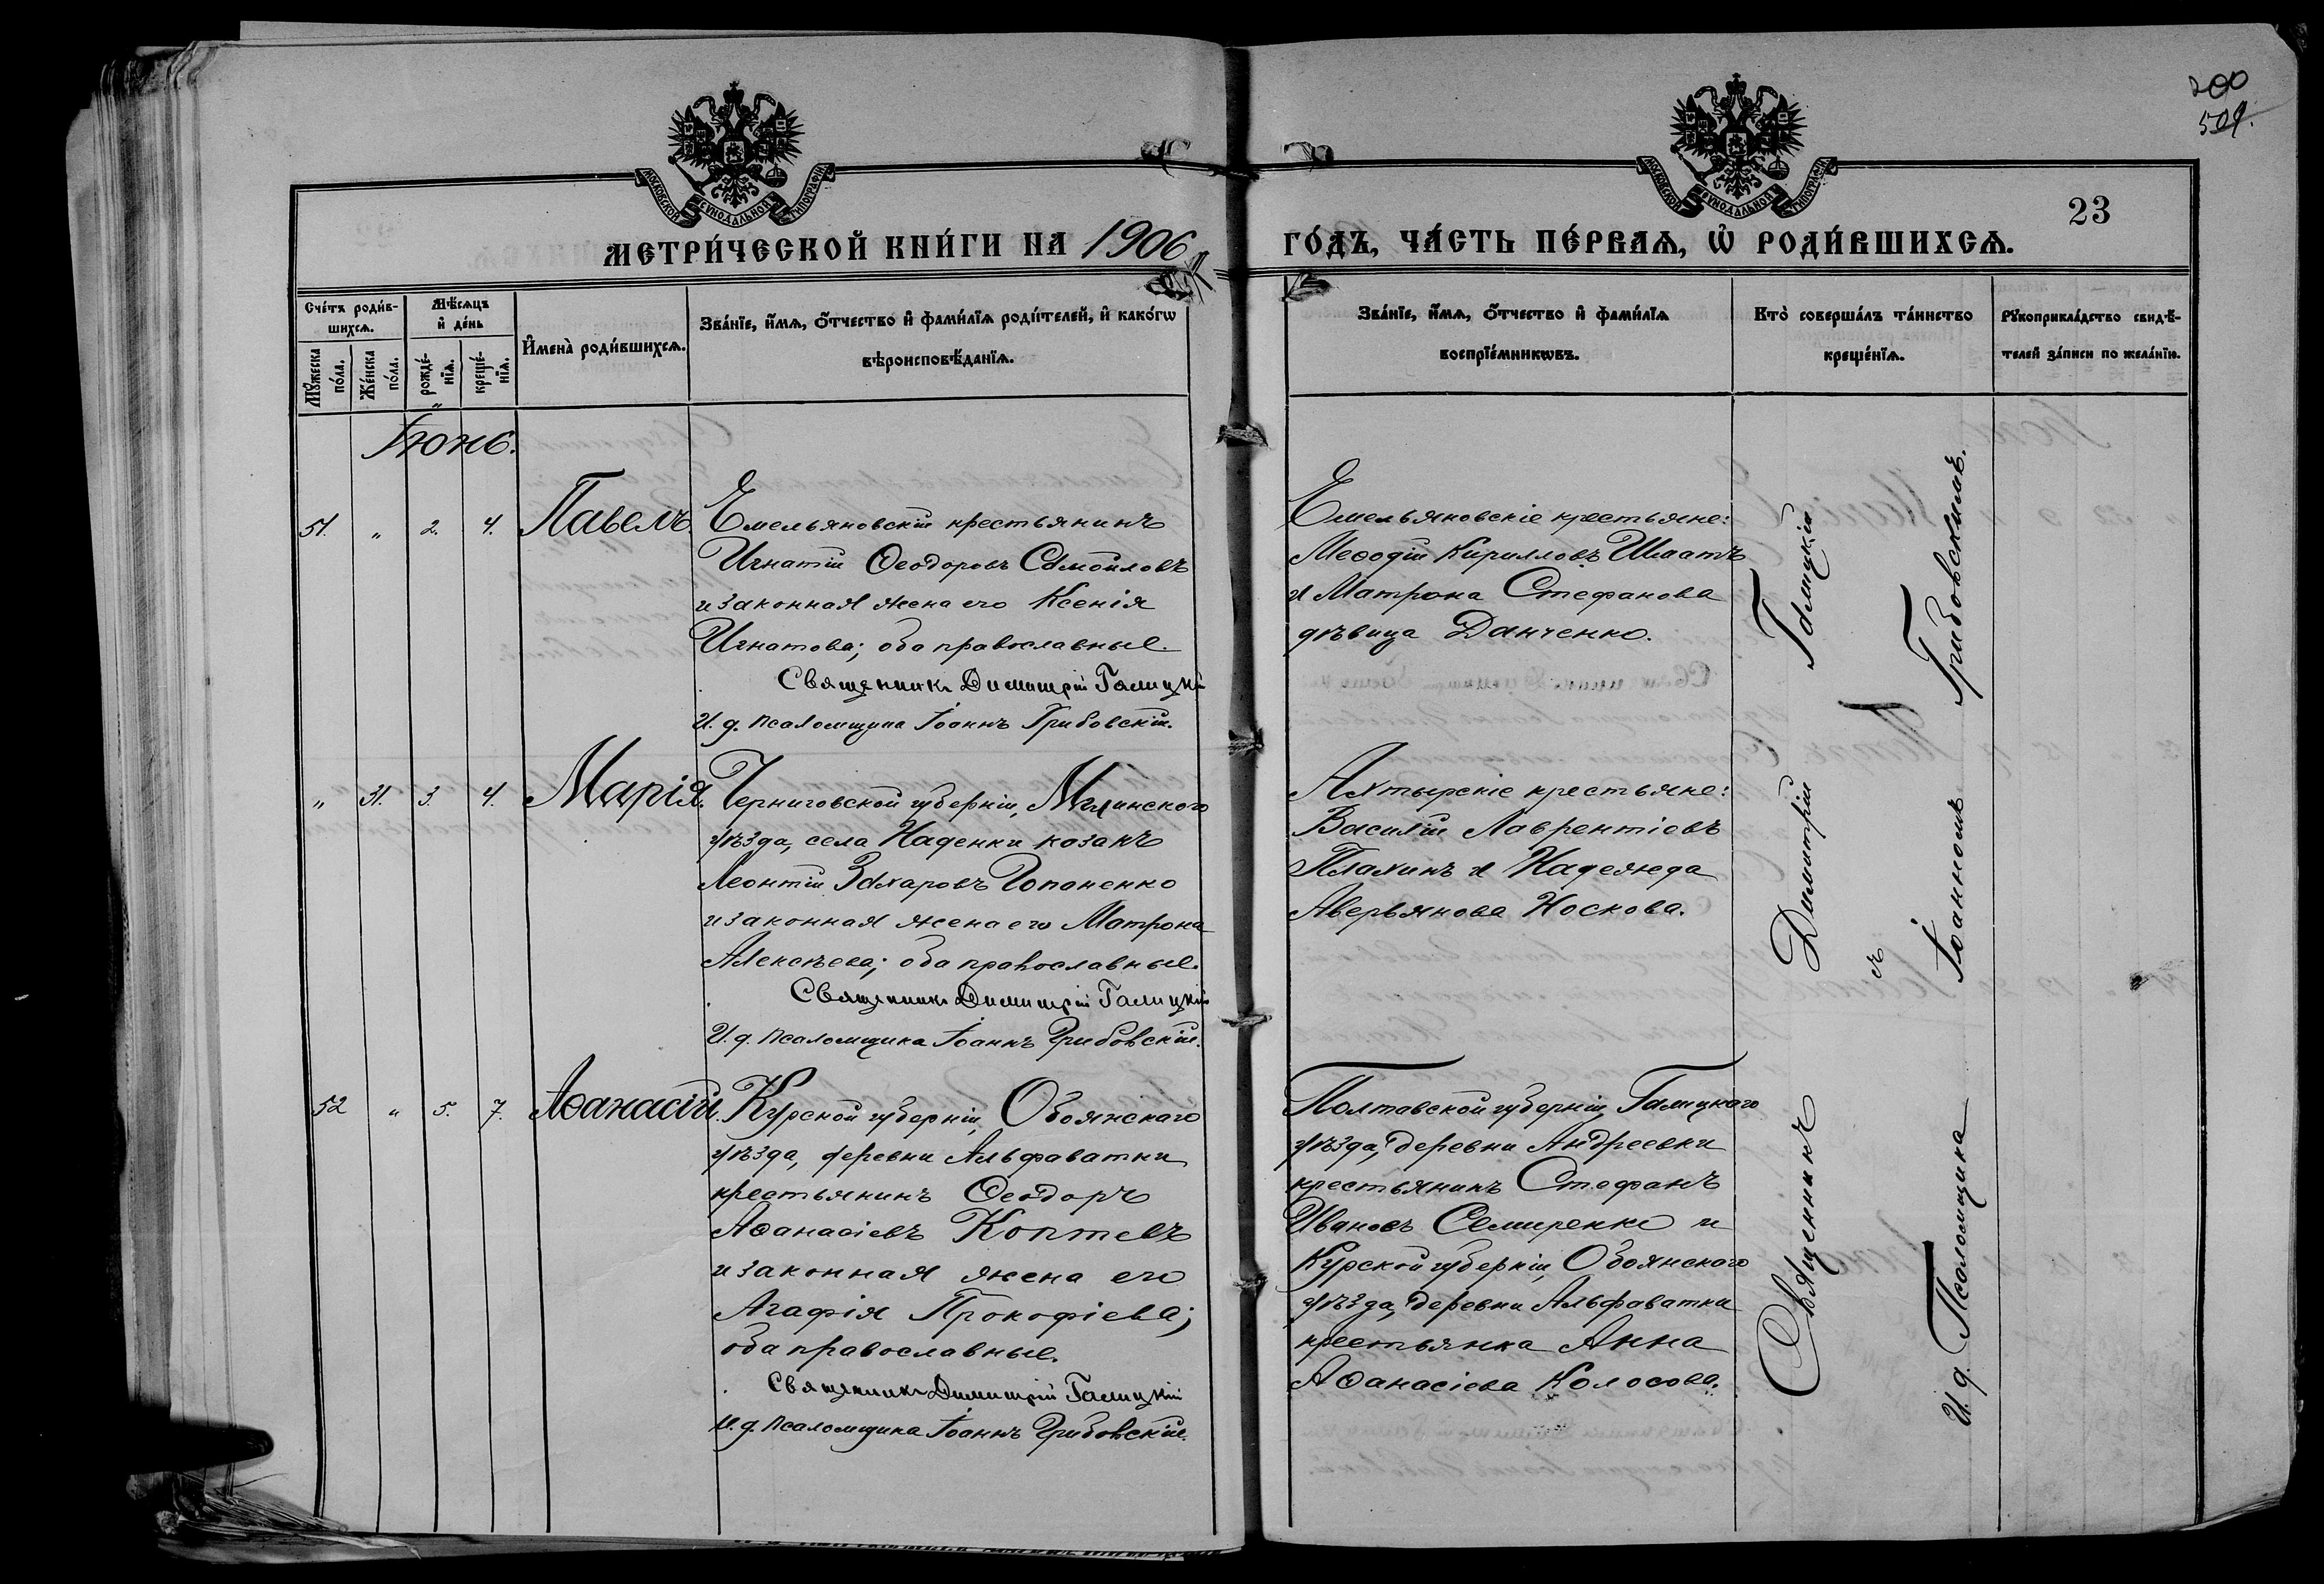 200
509.
МОСКОВСКОЙ СѴНОДАЛЬНОЙ ТИПОГРАФІИ
МОСКОВСКОЙ СѴНОДАЛЬНОЙ ТИПОГРАФІИ
23
МЕТРИ́ЧЕСКОЙ КНИ́ГИ НА 1906
ГО́ДЪ, ЧА́СТЬ ПЕ́РВАѦ, Ѡ҆ РОДИ́ВШИХСѦ.
Сче́тъ роди́в-
шихсѧ.
Мꙋ́жеска по́ла.
Же́нска по́ла.
Мѣ́сѧцъ
и҆ де́нь
рожде́-
нїѧ.
креще́-
нїѧ.
И҆мена̀ роди́вшихсѧ.
Зва́нїе, и҆́мѧ, ѻ҆́тчество и҆ фами́лїѧ роди́телей, и҆ како́гѡ
вѣроисповѣ́данїѧ.
Зва́нїе, и҆́мѧ, ѻ҆́тчество и҆ фами́лїѧ
воспрїе́мникѡвъ.
Кто̀ соверша́лъ та́инство
креще́нїѧ.
Рꙋкоприкла́дство свидѣ́-
телей за́писи по жела́нїю.
Іюнь.
51. " 2. 4. Павелъ.
Емельяновскій крестьянинъ
Игнатій Ѳеодоровъ Самойловъ
и законная жена его Ксенія
Игнатова; оба православные.
Священникъ Димитрій Галицкій
И. д. псаломщика Іоаннъ Грибовскій.
Емельяновскіе крестьяне:
Меѳодій Кирилловъ Шматъ
и Матрона Стефанова
дѣвица Данченко.
" 31. 3. 4. Марія.
Черниговской губерніи, Мглинского
уѣзда, села Наденки козакъ
Леонтій Захаровъ Гопоненко
и законная жена его Матрона
Алексѣева; оба православные.
Священникъ Димитрій Галицкій
И. д. псаломщика Іоаннъ Грибовскій.
Ахтырскіе крестьяне:
Василій Лаврентіевъ
Плахинъ и Надежда
Аверьянова Носкова.
52 " 5. 7. Аѳанасій.
Курской губерніи, Обоянскаго
уѣзда, деревни Альфаватки
крестьянинъ Ѳеодоръ
Аѳанасіевъ Коптевъ
и законная жена его
Агафія Прокофіева;
оба православные.
Священникъ Димитрій Галицкій
И. д. псаломщика Іоаннъ Грибовскій.
Полтавской губерніи, Гадицкаго
уѣзда, деревни Андреевки
крестьянинъ Стефанъ
Ивановъ Семиренко и
Курской губерніи, Обоянскаго
уѣзда, деревни Альфаватки
крестьянка Анна
Аѳанасіева Колосова.
Священникъ Димитрій Галицкій
съ
И. д. Псаломщика Іоанномъ Грибовскимъ.